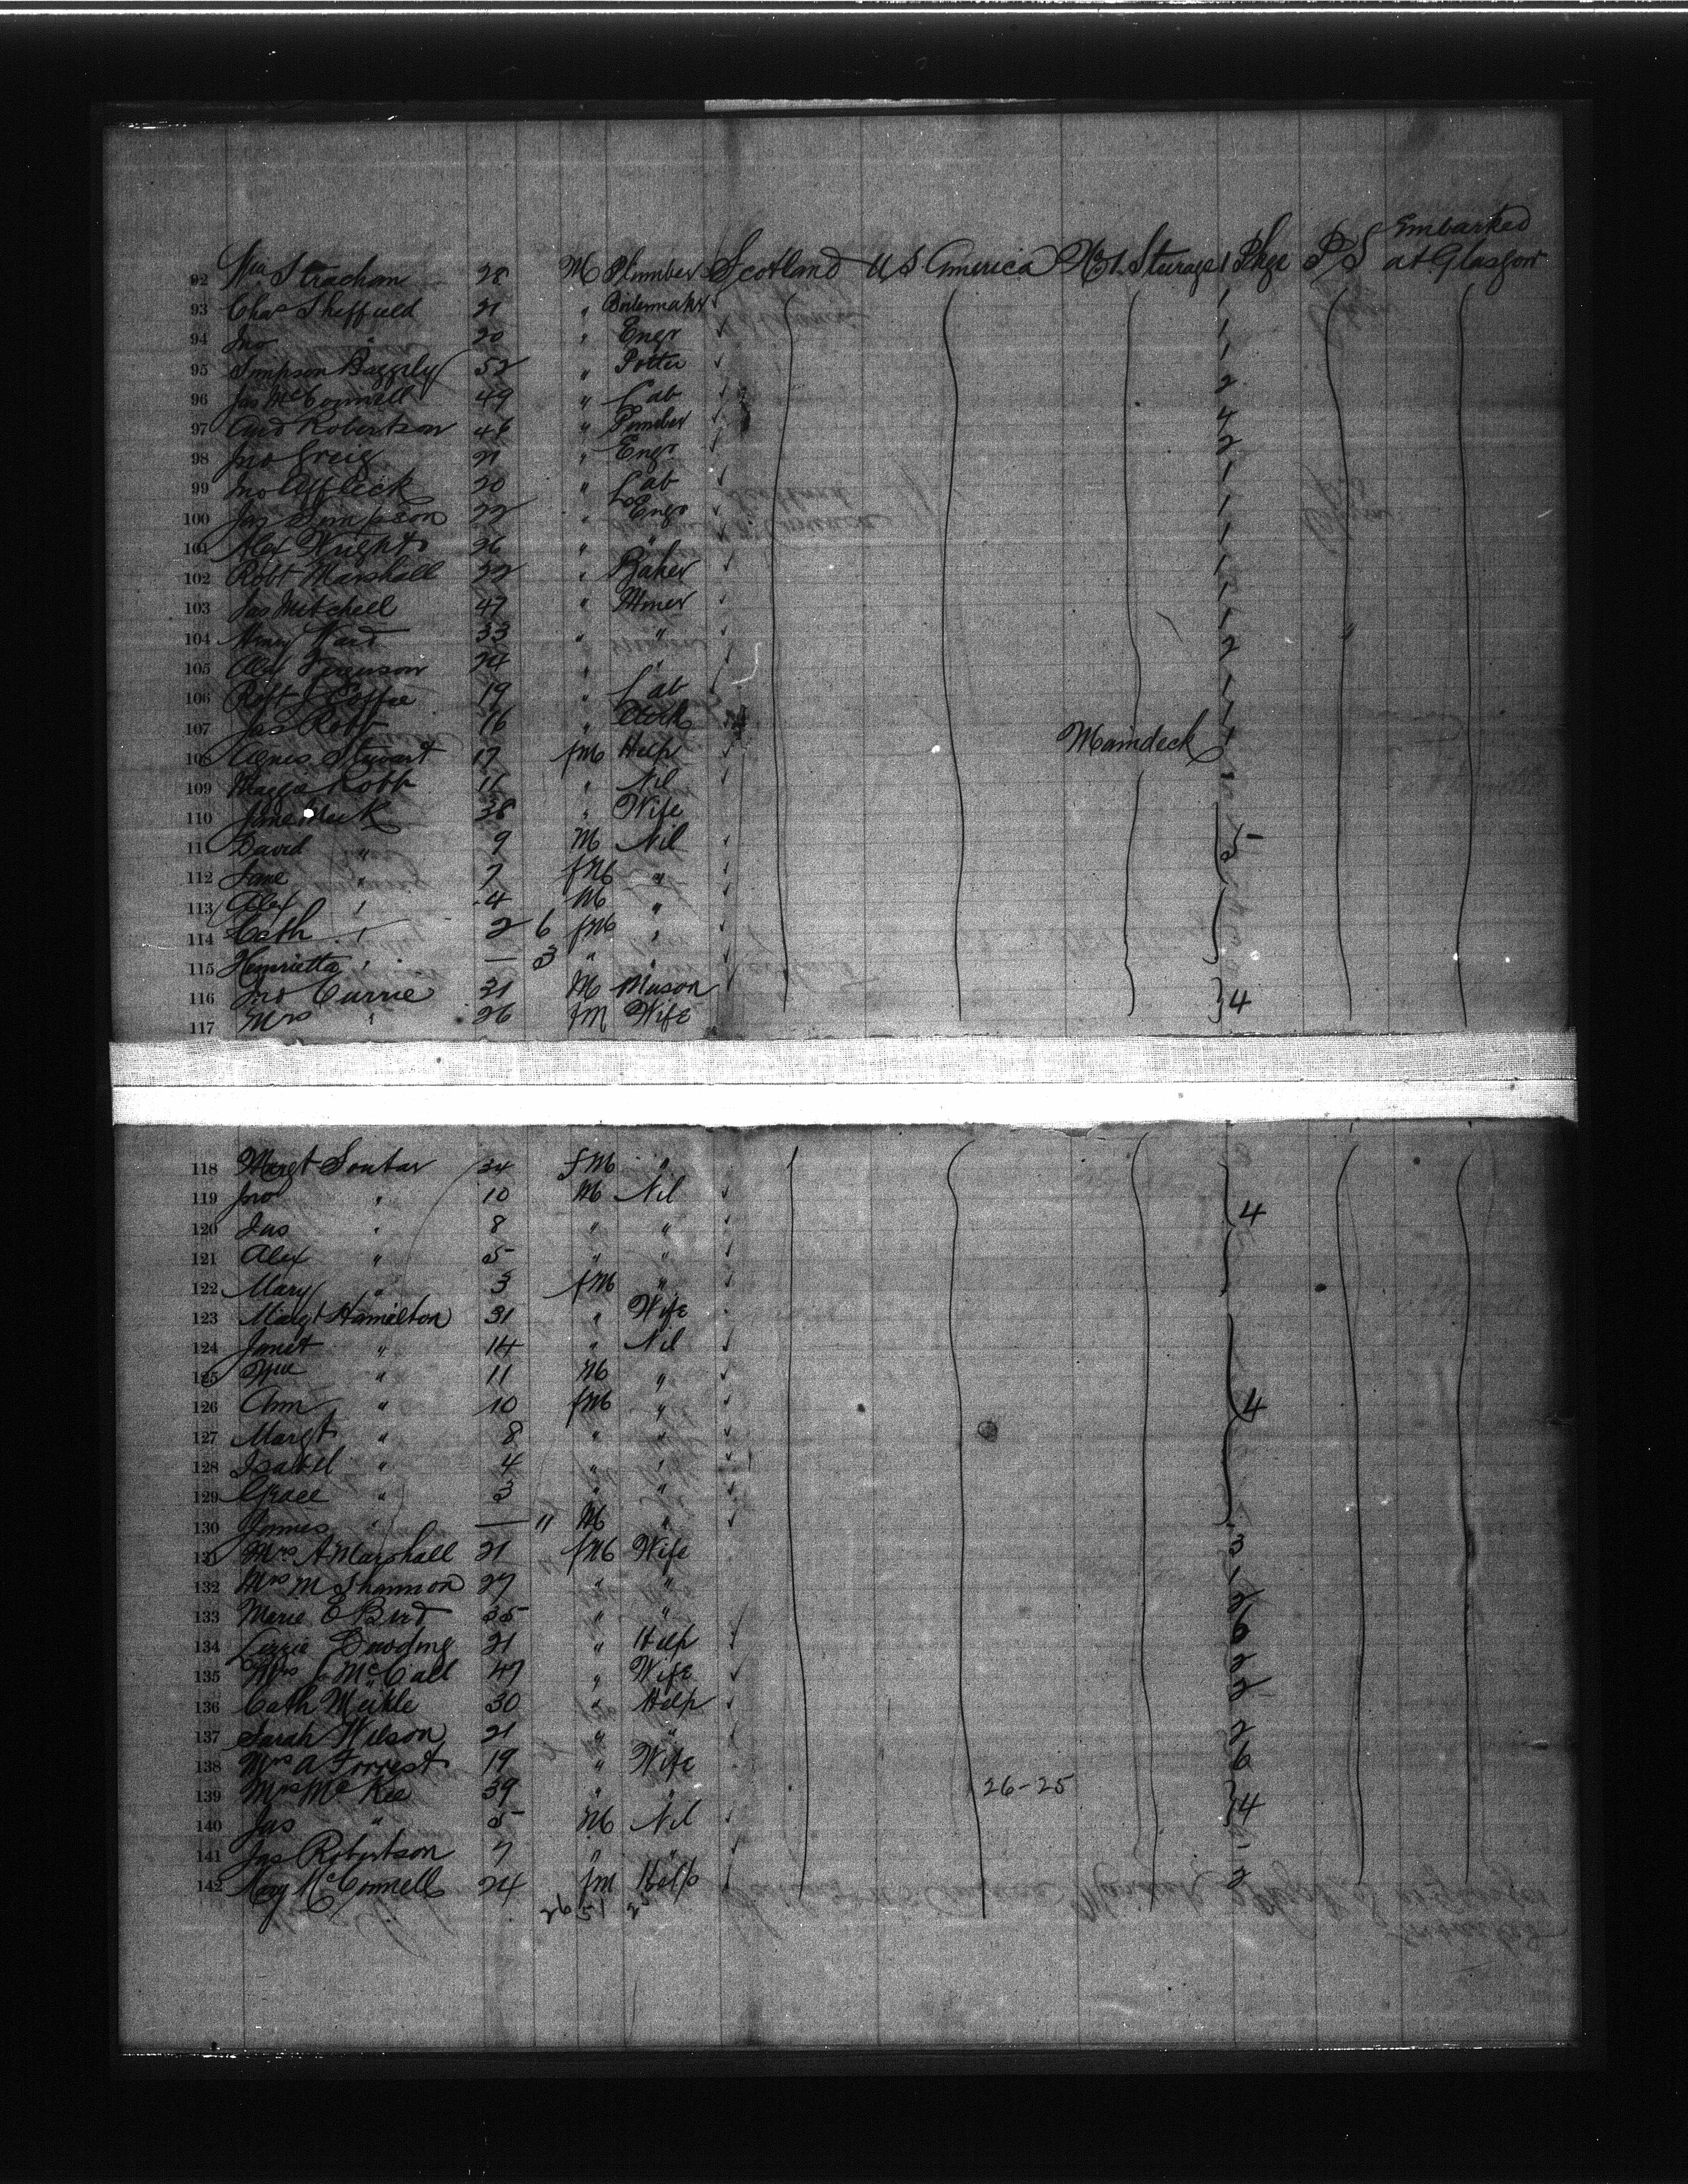 Embarked
92 Wm Strachan 28 M Plumber Scotland U.S. America No 1. Sturage 1 Pkge P/S at Glasgow
93 Chas Sheffield 21 " Boilermakr 1
94 Jno " 20 " Engr 1
95 Simpson Baggely 52 " Potter 1
96 Jas McConnell 49 " Lab 2
97 And Robertson 46 " 4
98 Jno Greig 21 " Engr 2
99 Jno Affleck 20 " Lab 1
100 Jas Simpson 22 " Engr 1
101 Alex Wright 26 " " 1
102 Robt Marshall 22 " Baker 1
103 Jas Mitchell 47 " Miner 1
104 Henry Ward 33 " " 1
105 Alex Ferguson 24 " " 2
106 Robt 19 " Lab 1
107 Jas Robb 16 " Clerk 1
108 Agnes Stewart 17 fM Help Maindeck 1
109 Maggie Robb 11 " Nil
110 Jane Meek 38 " Wife
111 David " 9 M Nil 5
112 Jane " 7 fM "
113 Alex " 4 M "
114 Cath " 2 6 fM "
115 Henrietta " — 3 " "
116 Jno Currie 31 M Mason 4
117 Mrs " 26 fM Wife
118 Margt Soutar 34 fM "
119 Jno " 10 M Nil
120 Jas " 8 " " 4
121 Alex " 5 " "
122 Mary " 3 fM "
123 Margt Hamilton 31 " Wife
124 Janet " 14 " Nil
125 Wm " 11 M "
126 Ann " 10 fM " 4
127 Margt " 8 " "
128 Isabel " 4 " "
129 Grace " 3 " "
130 James " — 11 M "
131 Mrs A Marshall 21 fM Wife 3
132 Mrs M Shannon 27 " " 1
133 Merie E Bird 35 " " 2
134 Lizzie 21 " Help 6
135 Mrs J McCall 47 " Wife 2
136 Cath Meikle 30 " Help 2
137 Sarah Wilson 21 " " 2
138 Mrs A Forrest 19 " Wife 6
139 Mrs McKee 39 " " 26-25
140 Jas " 5 M Nil 4
141 Jas Robertson 7 " " 1
142 McConnell 24 fM Help 2
26 51 25